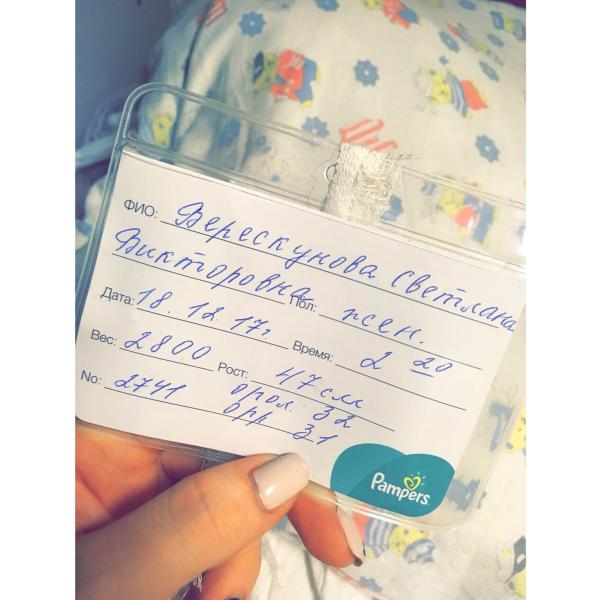 ФИО: Верескунова Светлана
Викторовна Пол: жен.
Дата: 18. 12. 17г. Время: 2 20
Вес: 2800 Рост: 47 см
No: 2741 Oгол. 32
Oгр 31
Pampers